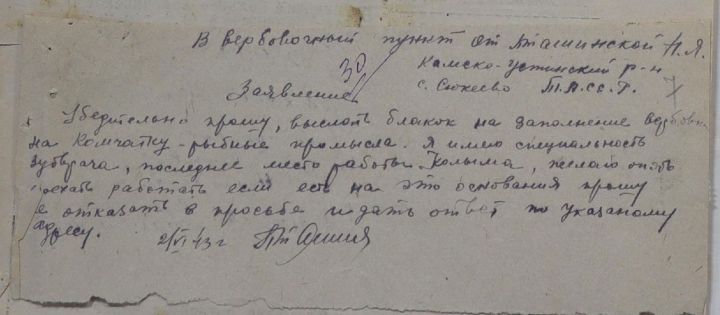 В вербовочный пункт от Пташинской Н.Я.
Камско-Устинский р-н
с. Сюкеево Т.А.сс.Р.
30
Заявление
Убедительно прошу, выслать бланок на заполнение вербовки
на Камчатку-рыбные промысла. Я имею специальность
зубврача, последнее место работы Колыма, желаю опять
поехать работать если есть на это основания прошу
не отказать в просьбе и дать ответ по указаному
адресу. 2/VI 43 г